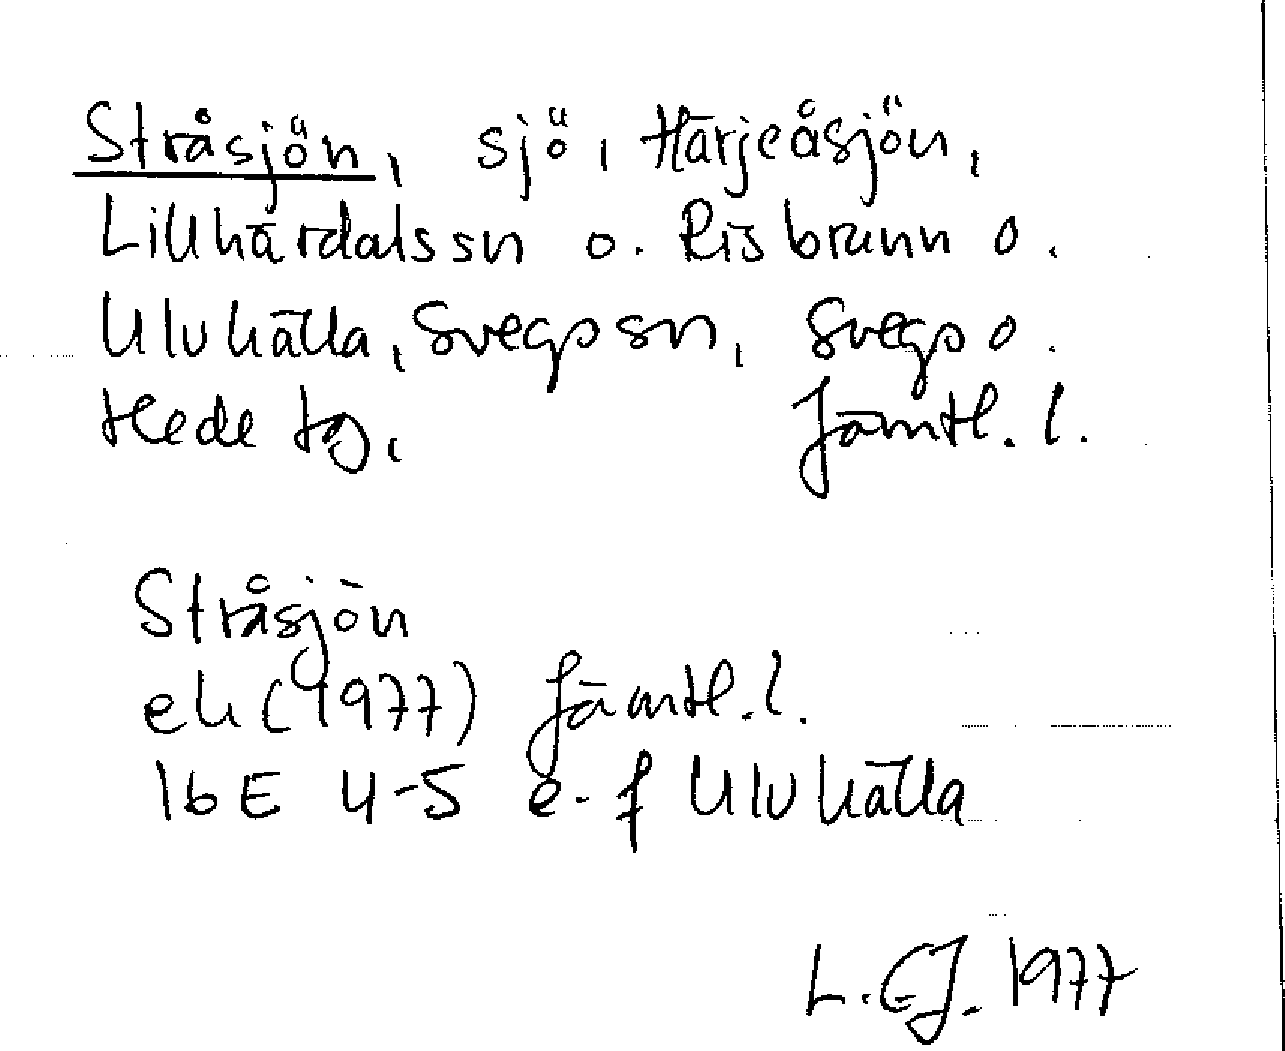 Stråsjön, sjö, Härjeåsjön,
Lillhärdals sn o. Risbrunn o.
Ulvkälla, Svegs sn, Svegs o.
Hede tg, Jämtl. l.
Stråsjön
ek (1977) Jämtl. l.
16E 4-5 e-f Ulvkälla
L.EJ. 1977